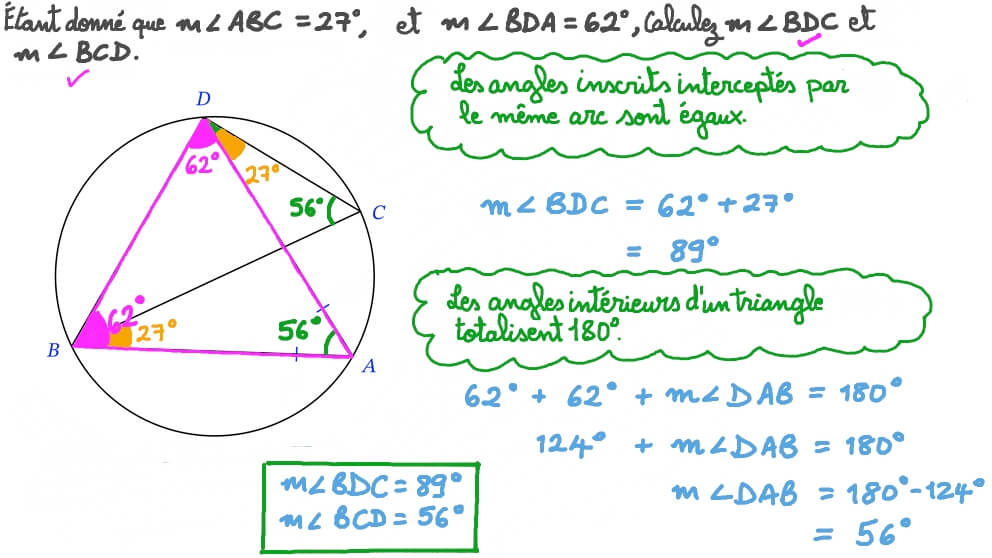 Étant donné que m∠ABC = 27°, et m∠BDA = 62°, Calculez m∠BDC et
m∠BCD.
Les angles inscrits interceptés par
le même arc sont égaux.
D
62°
27°
56°
C
m∠BDC = 62° + 27°
= 89°
Les angles intérieurs d'un triangle
totalisent 180°.
62°
27°
56°
B
A
62° + 62° + m∠DAB = 180°
124° + m∠DAB = 180°
m∠DAB = 180° - 124°
= 56°
m∠BDC = 89°
m∠BCD = 56°